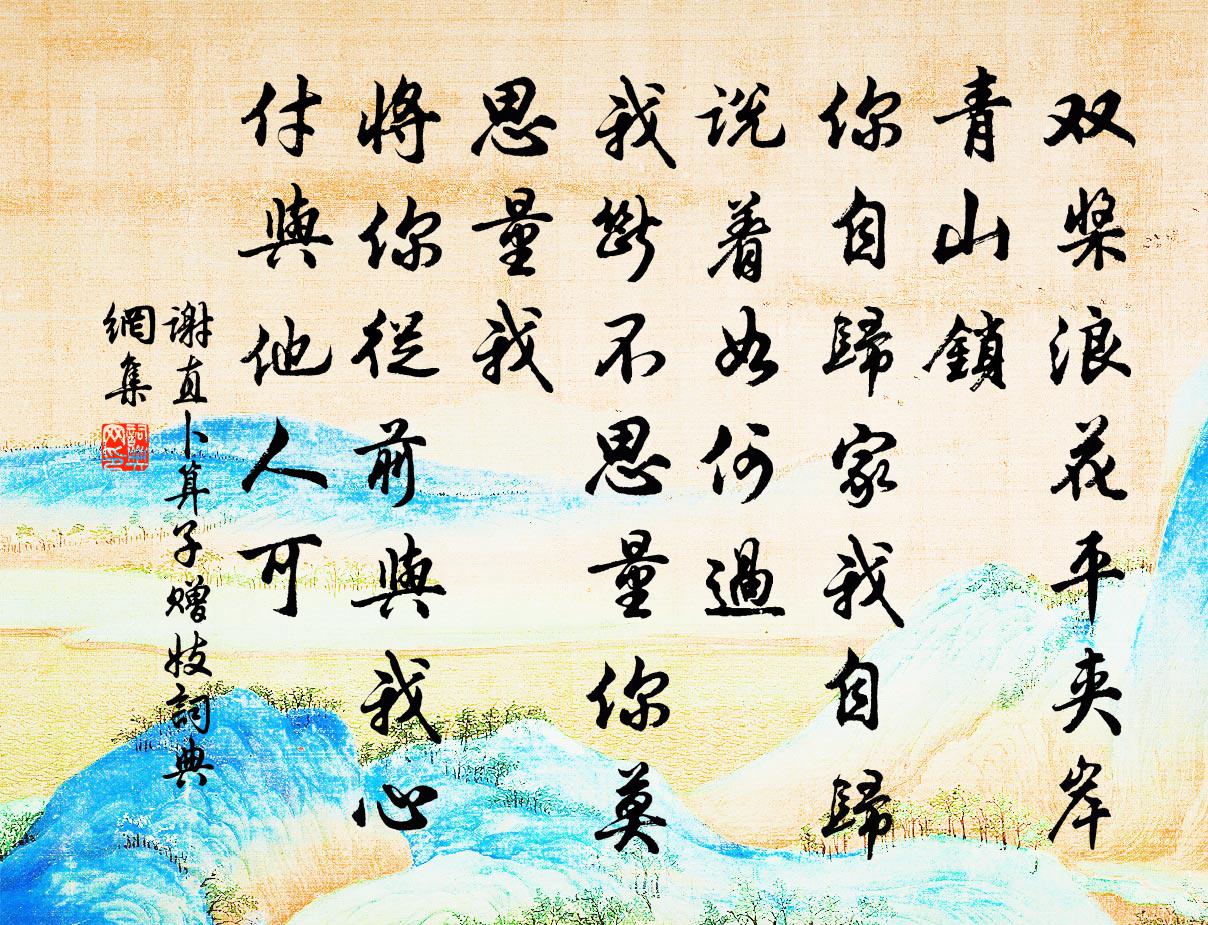 双桨浪花平夹岸
青山鎖
你自歸家我自歸
説着如何過
我斷不思量你莫
思量我
將你從前與我心
付與他人可
謝直卜算子赠妓詞典
網集